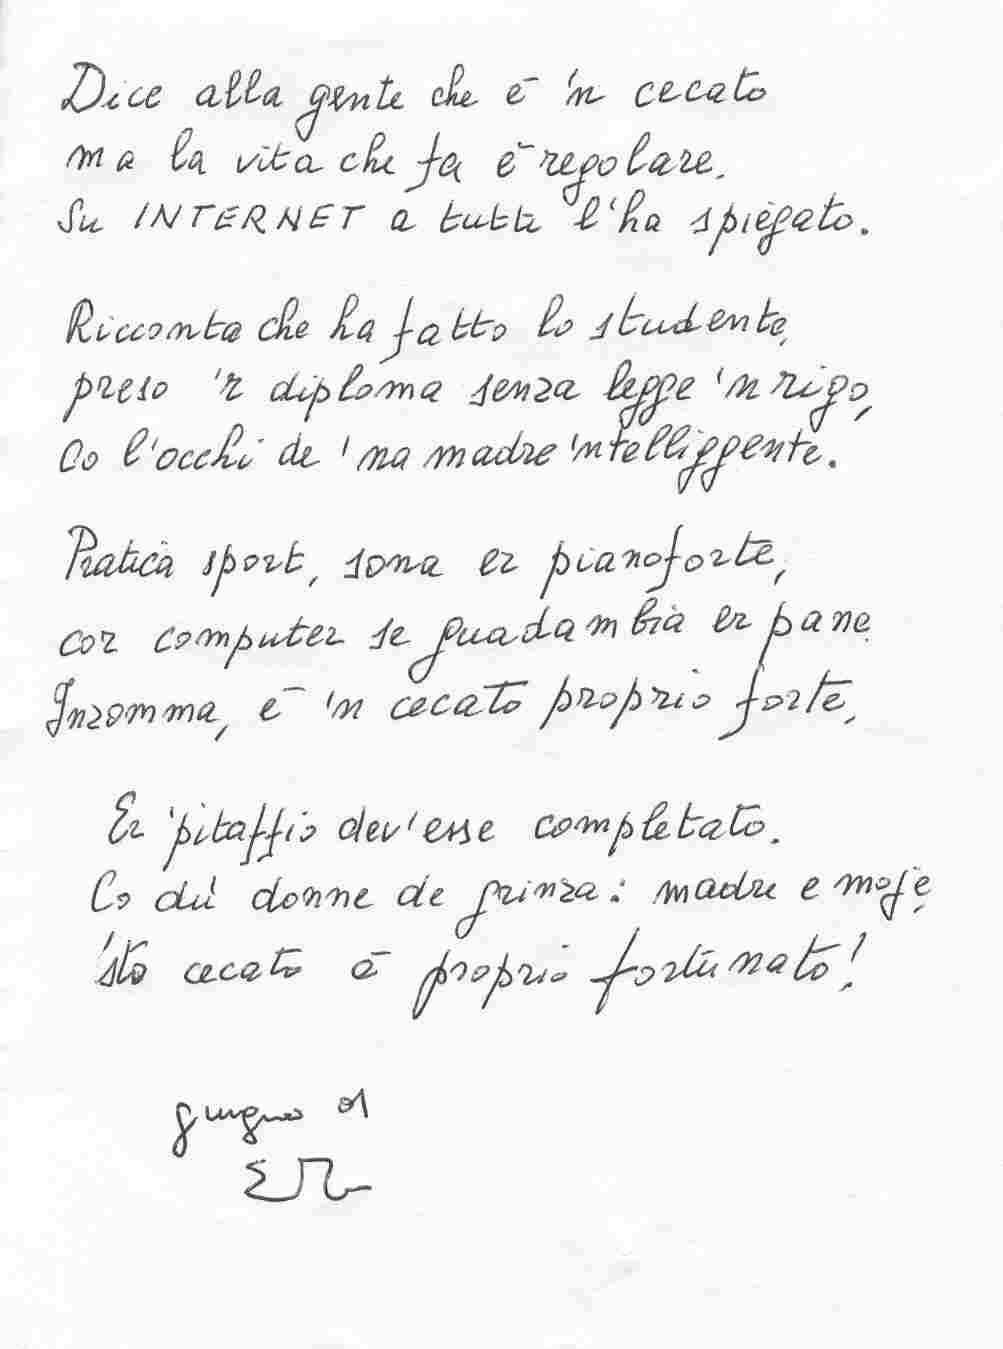 Dice alla gente che è 'n cecato
ma la vita che fa è regolare.
Su INTERNET a tutti l'ha spiegato.
Ricconta che ha fatto lo studente,
preso 'r diploma senza legge 'n rigo,
Co l'occhi de 'na madre 'ntelliggente.
Pratica sport, sona er pianoforte,
cor computer se guadambia er pane.
Inzomma, è 'n cecato proprio forte.
Er 'pitaffio dev'esse completato.
Co du' donne de grinza: madre e moje
'sto cecato è proprio fortunato!
giugno 01